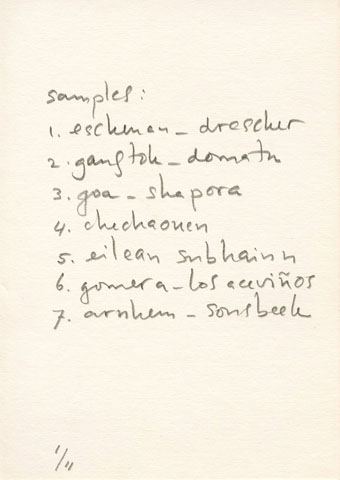 samples:
1. eschenau - drescher
2. gangtok - domatu
3. goa - shapora
4. chechaouen
5. eilean subhainn
6. gomera - los aceviños
7. arnhem - sonsbeek
1/11